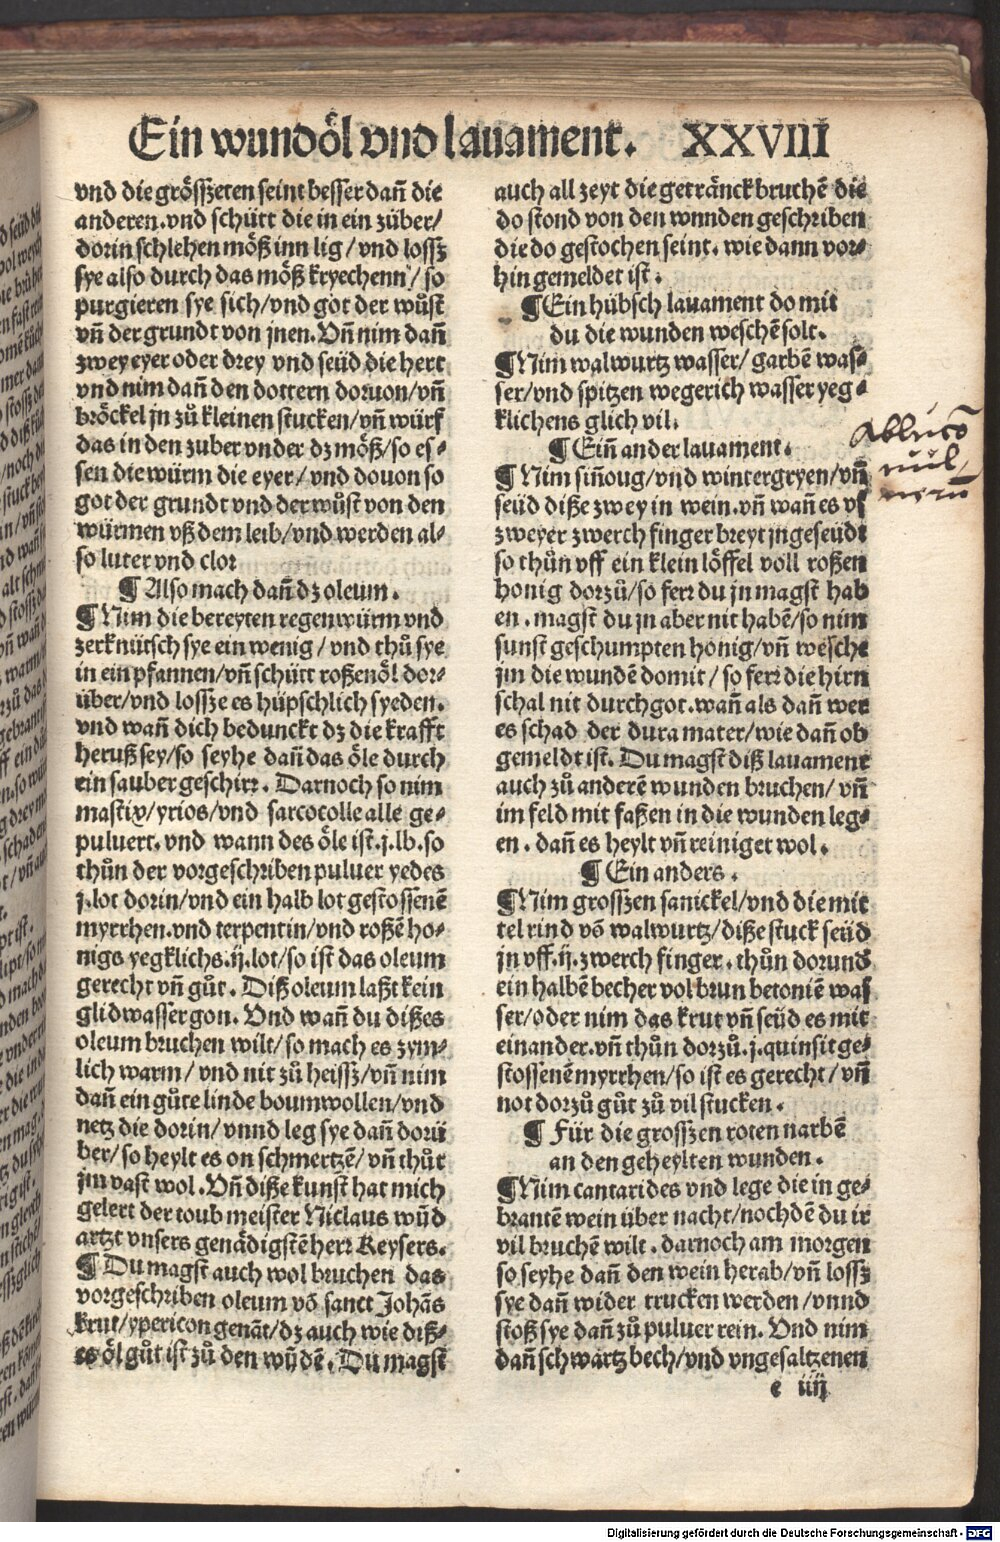 Ein wundöl vnd lauament. XXVIII
vnd die grösszeten seint besser dañ die
anderen. vnd schütt die in ein züber/
dorin schlehen möß inn lig/vnd lossz
sye also durch das möß kryechenn/so
purgieren sye sich/vnd got der wůst
vñ der grundt von jnen. Vñ nim dañ
zwey eyer oder drey vnd seüd die hert
vnd nim dañ den dottern doruon/vñ
bröckel jn zů kleinen stucken/vñ würf
das in den zuber vnder dz möß/so es-
sen die würm die eyer/vnd douon so
got der grundt vnd der wůst von den
würmen vß dem leib/vnd werden al-
so luter vnd clor
¶ Also mach dañ dz oleum.
¶ Nim die bereyten regenwürm vnd
zerknütsch sye ein wenig/vnd thů sye
in ein pfannen/vñ schütt roßenöl dor-
über/vnd lossze es hüpschlich syeden.
vnd wañ dich bedunckt dz die krafft
heruß sey/so seyhe dañ das öle durch
ein sauber geschirr. Darnoch so nim
mastix/yrios/vnd sarcocolle alle ge-
puluert. vnd wann des öle ist .j. lb. so
thůn der vorgeschriben puluer yedes
j. lot dorin/vnd ein halb lot gestossenē
myrrhen. vnd terpentin/vnd roßē ho-
nigs yegklichs .ij. lot/so ist das oleum
gerecht vñ gůt. Diß oleum laßt kein
glidwasser gon. Vnd wañ du dißes
oleum bruchen wilt/so mach es zym-
lich warm/vnd nit zů heissz/vñ nim
dañ ein gůte linde boumwollen/vnd
netz die dorin/vnnd leg sye dañ dorü
ber/so heylt es on schmertzē/vñ thůt
jm vast wol. Vñ diße kunst hat mich
gelert der toub meister Niclaus wūd
artzt vnsers genädigstē herr Keysers.
¶ Du magst auch wol bruchen das
vorgeschriben oleum vō sanct Johās
krut/ypericon genāt/dz auch wie diß-
es öl gůt ist zů den wūdē. Du magst
auch all zeyt die getränck bruchē die
do stond von den wnnden geschriben
die do gestochen seint. wie dann vor-
hin gemeldet ist.
¶ Ein hübsch lauament do mit
du die wunden weschē solt.
¶ Nim walwurtz wasser/garbē was-
ser/vnd spitzen wegerich wasser yeg-
klichens glich vil.
¶ Eiñ ander lauament.
¶ Nim siñoug/vnd wintergryen/vñ
seüd diße zwey in wein. vñ wañ es vf
zweyer zwerch finger breyt jngeseüdt
so thůn vff ein klein löffel voll roßen
honig dorzů/so ferr du jn magst hab
en. magst du jn aber nit habē/so nim
sunst geschumpten honig/vñ wesche
jm die wundē domit/so ferr die hirn
schal nit durchgot. wañ als dañ wer
es schad der dura mater/wie dañ ob
gemeldt ist. Du magst diß lauament
auch zů anderē wunden bruchen/vñ
im feld mit faßen in die wunden leg-
en. dañ es heylt vñ reiniget wol.
¶ Ein anders.
¶ Nim grosszen sanickel/vnd die mit
tel rind vō walwurtz/diße stuck seüd
jn vff .ij. zwerch finger. thůn dorund
ein halbē becher vol brun betoniē was
ser/oder nim das krut vñ seüd es mit
einander. vñ thůn dorzů .j. quinsit ge-
stossenē myrrhen/so ist es gerecht/vñ
not dorzů gůt zů vil stucken.
¶ Für die grosszen roten narbē
an den geheylten wunden.
¶ Nim cantarides vnd lege die in ge-
brantē wein über nacht/nochdē du ir
vil bruchē wilt. darnoch am morgen
so seyhe dañ den wein herab/vñ lossz
sye dañ wider trucken werden/vnnd
stoß sye dañ zů puluer rein. Vnd nim
dañ schwartz bech/vnd vngesaltzenen
e iiij
Ablutō
vul
nerū
Digitalisierung gefördert durch die Deutsche Forschungsgemeinschaft - DFG